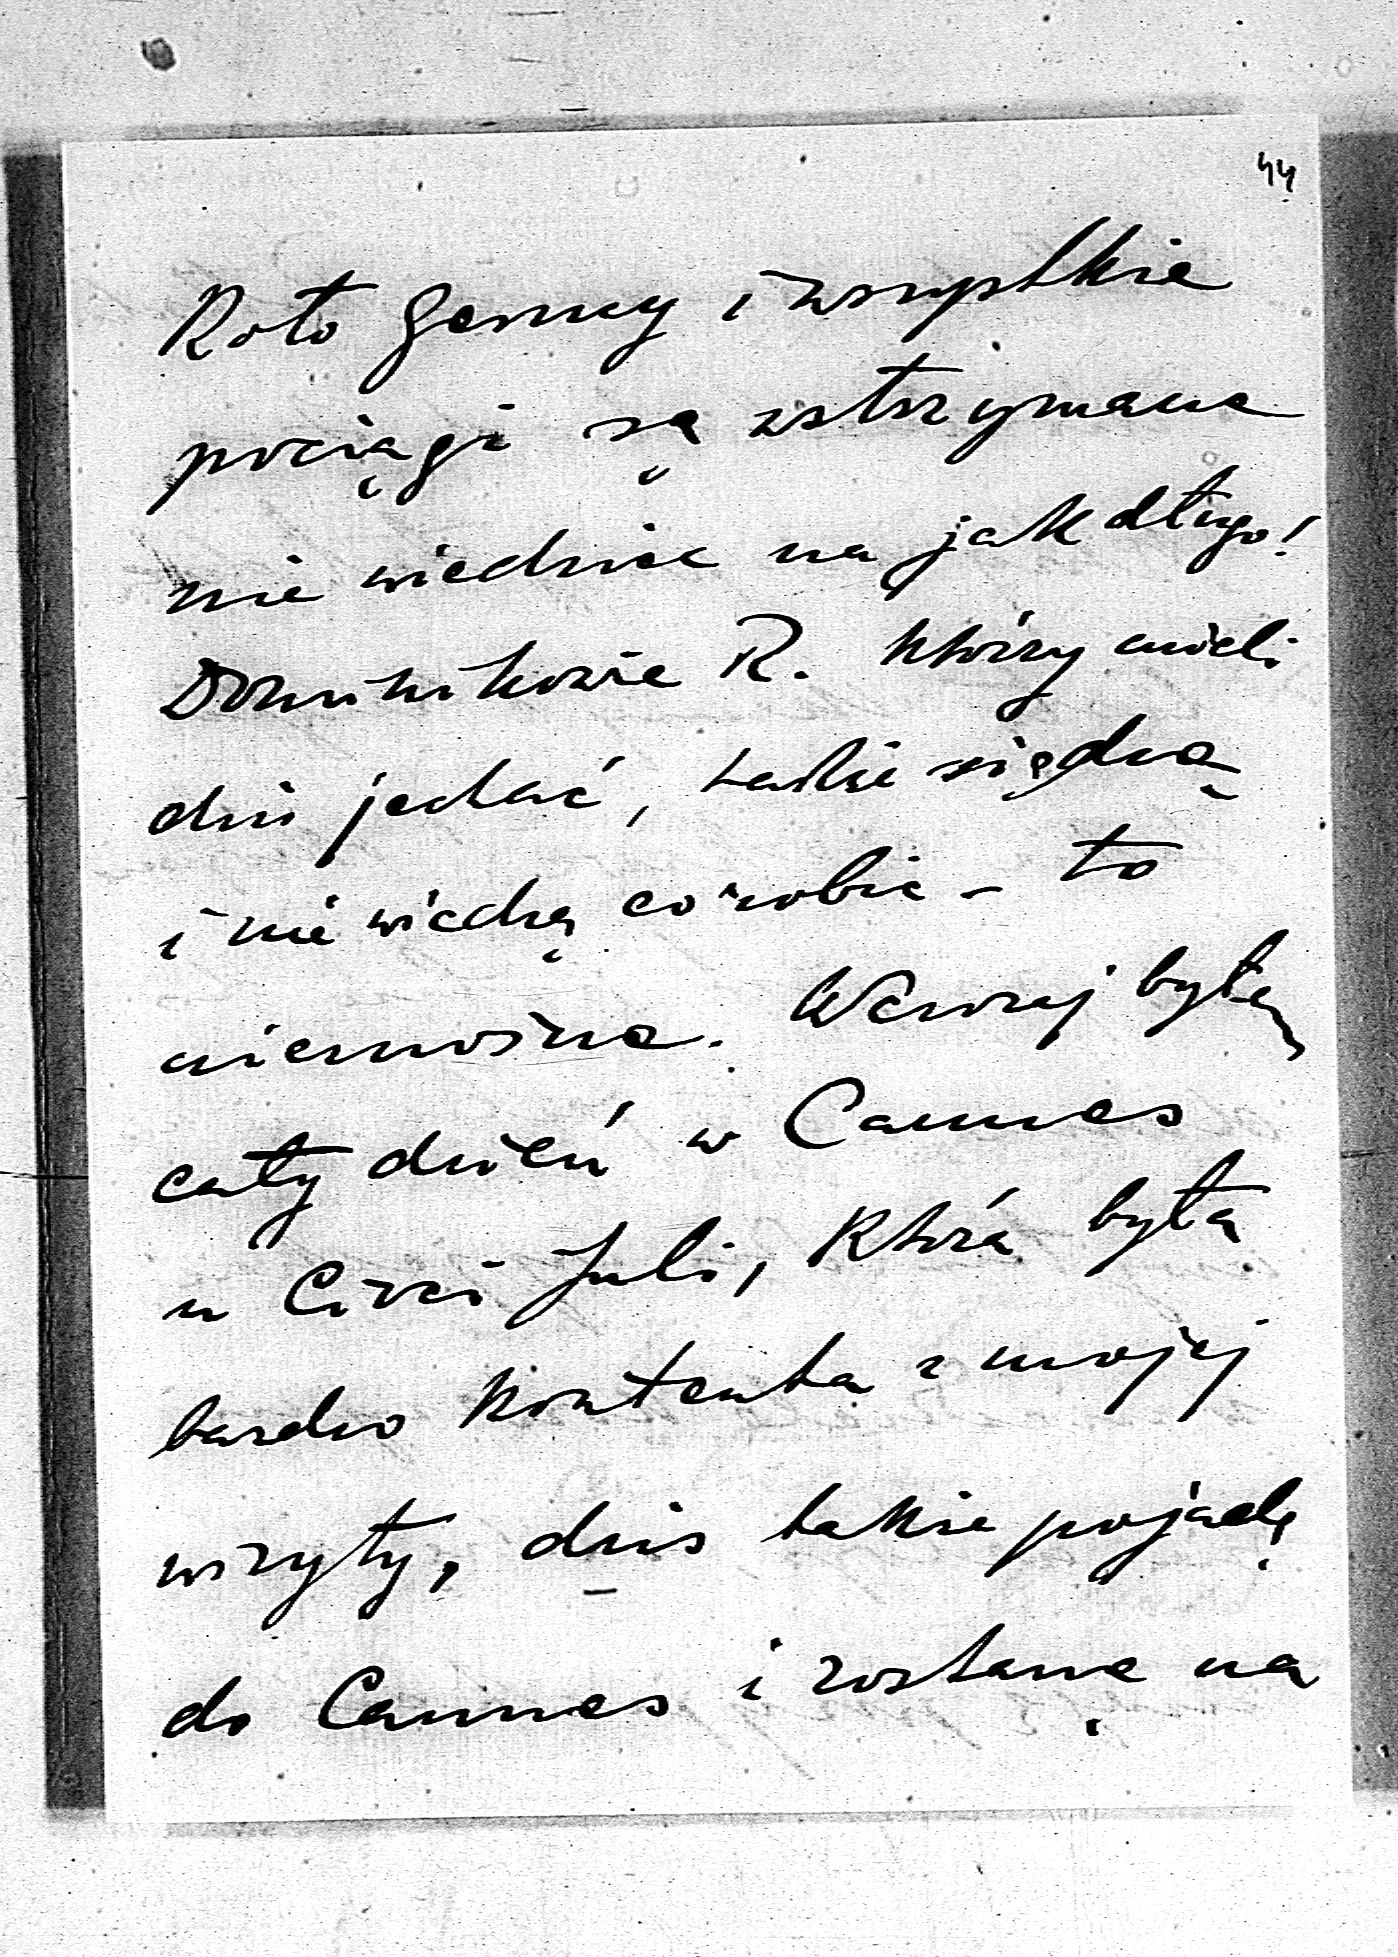 44
Koło Genuy i wszystkie
pociągi są wstrzymane
nie wiedzieć na jak długo!
Dominikowie R. którzy mieli
dziś jechać, także siedzą
i nie wiedzą co robić – to
niemożne. Wczoraj byłem
cały dzień w Cannes
u Cioci Juli, która była
bardzo kontenta z mojej
wizyty, dziś także pojadę
do Cannes i zostanę na